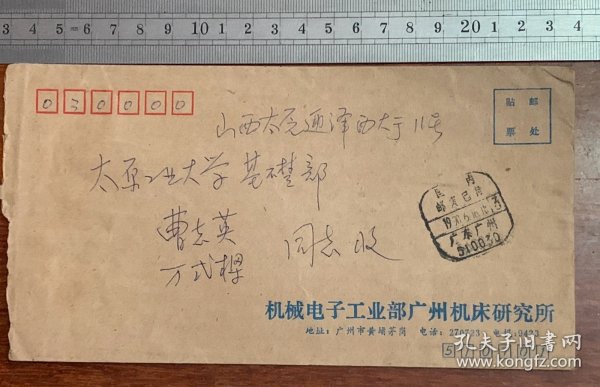 3 4 5 6 7 8 9 10 1 2 3 4 5 6 7 8 9 20 1 2 3 4
030000
贴 邮
票 处
山西太原迎泽西大于11号
太原工业大学基礎部
曹志英 同志收
万式樑
国内
邮资已付
广东广州
510030
机械电子工业部广州机床研究所
地址：广州市黄埔茅岗 电话：270723 电挂：9420
孔夫子旧书网
kongfz.com